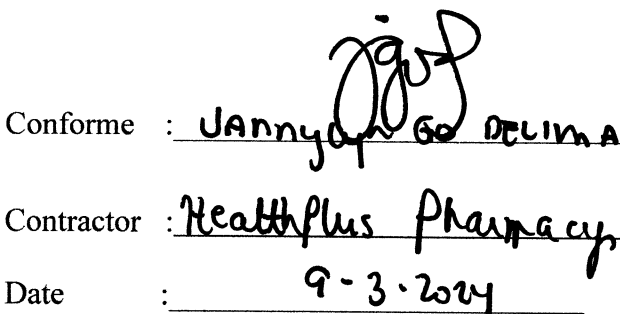 Conforme : JANNYLYN GO DELIMA
Contractor : HealthPlus Pharmacy
Date : 9-3-2024